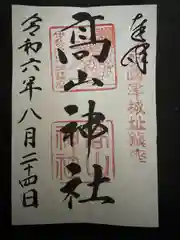 奉拝
津城址鎮座
高山神社
令和六年八月二十四日